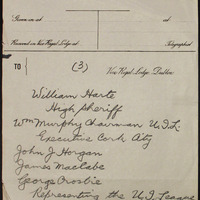 Given in at at
Received in Vice Regal Lodge at Telegraphed
TO (3) Vice Regal Lodge, Dublin:
William Harte
High Sheriff
Wm Murphy Chairman U.I.L.
Executive Cork City
John J Horgan
James MacCabe
George Crosbie
Representing the U.I League